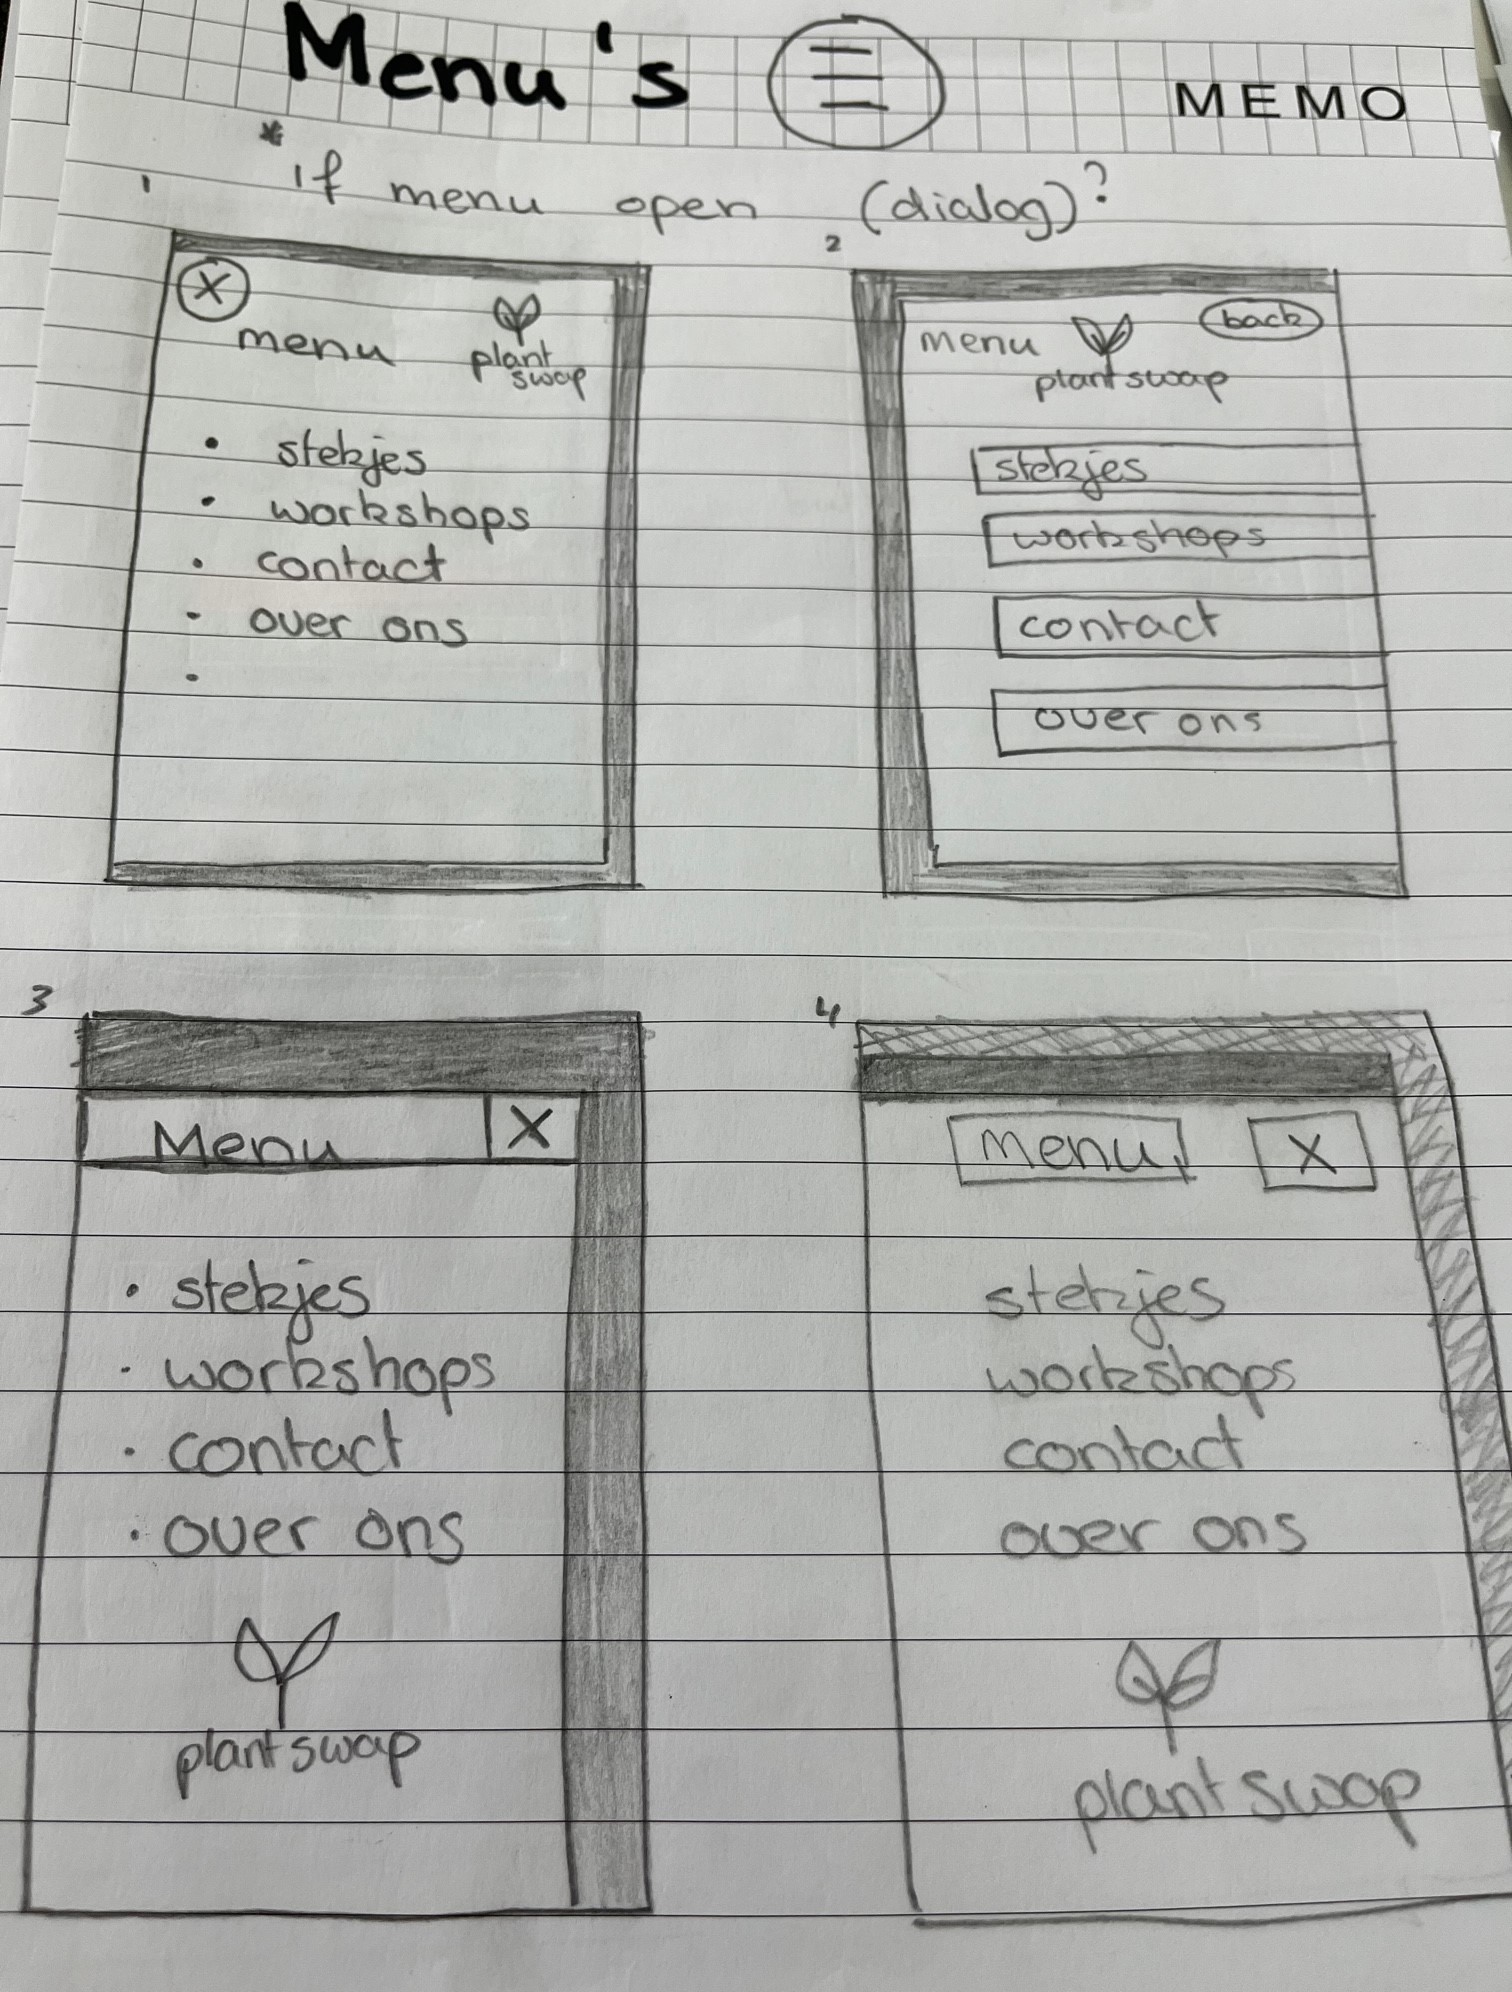 Menu's
MEMO
* if menu open (dialog)?
1
X
menu
plant
swap
• stekjes
• workshops
• contact
• over ons
•
2
menu
back
plantswap
stekjes
workshops
contact
over ons
3
Menu
X
• stekjes
• workshops
• contact
• over ons
plantswap
4
menu
X
stekjes
workshops
contact
over ons
plant swap